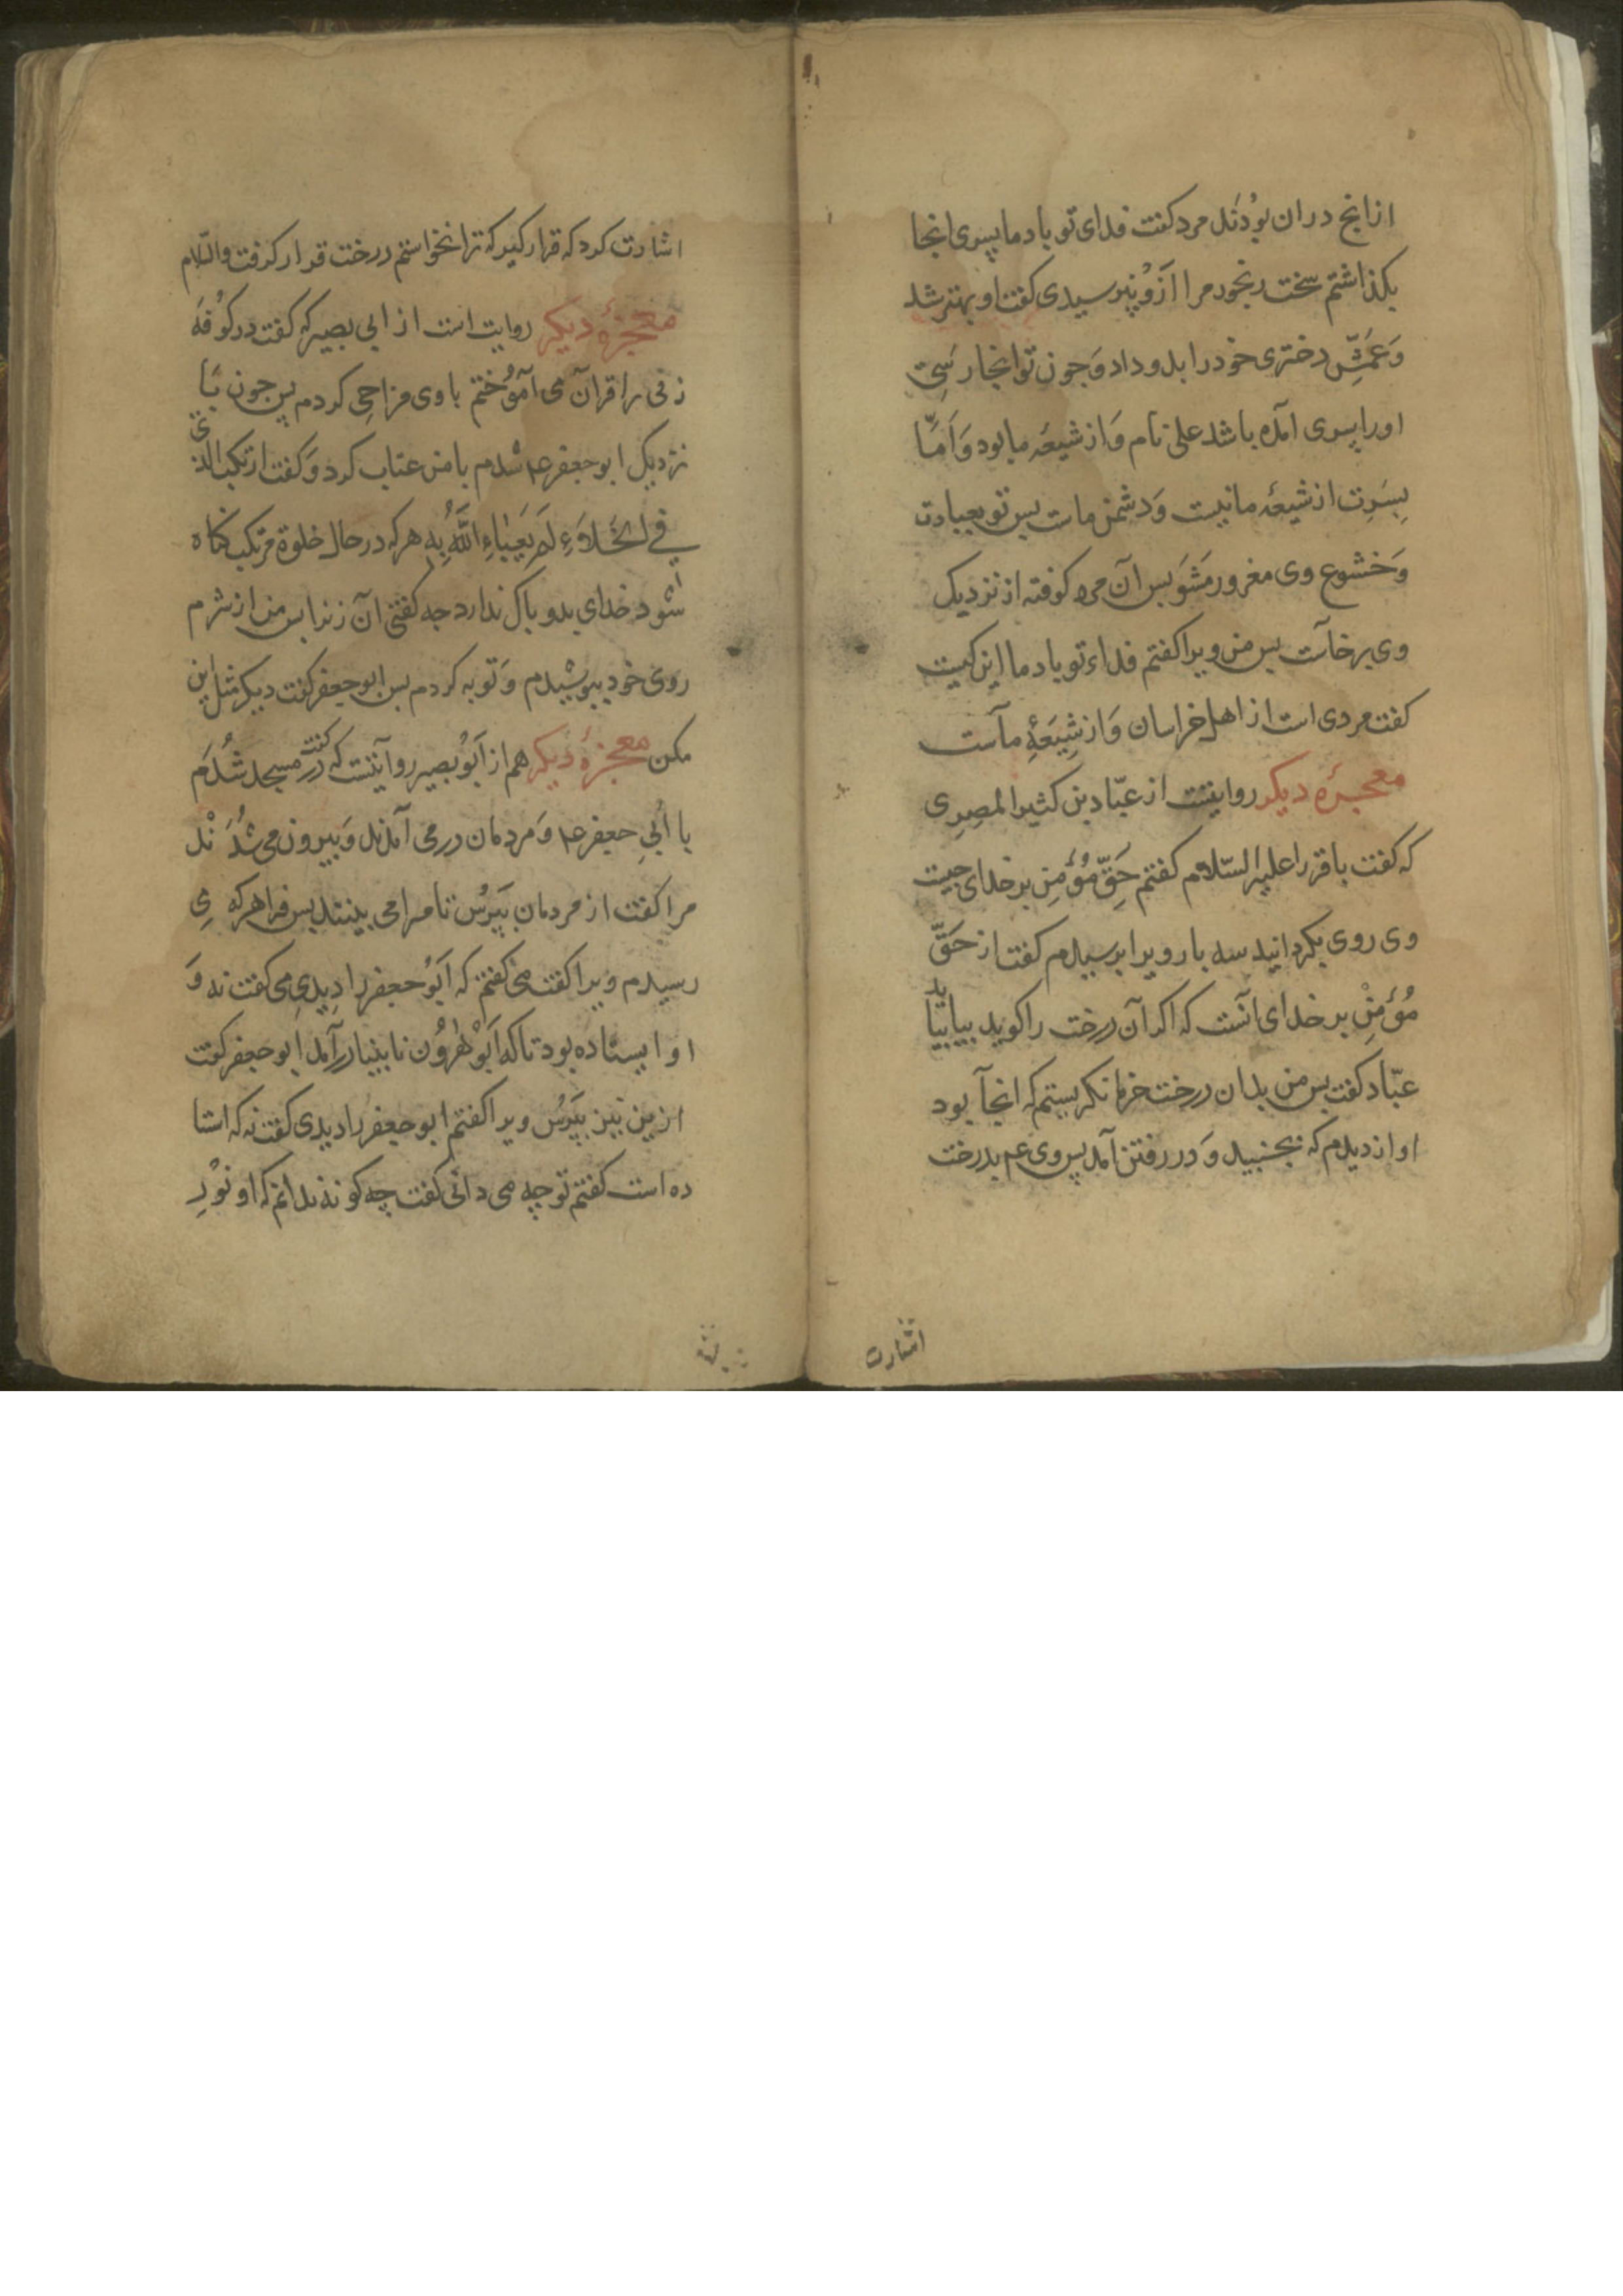 ازانچ دران بودند مرد گفت فدای تو باد ما پسری انجا
بگذاشتم سخت رنجور مرا ازو نپرسیدی گفت او بهتر شد
وَعَمَّش دختری خود را بدو داد وَجون تو انجا رسی
اورا پسری آمده باشد علی نام وَاز شیعهٔ ما بود وَاَمّا
پسرت از شیعهٔ ما نیست وَدشمن ماست بس تو بعبادت
وَخشوع وی مغرور مَشَو بس آن مرد کوفته از نزدیک
وی برخاست بس من ویرا کفتم فداء تو باد ما این کیست
کفت مردی است از اهل خراسان وَاز شِیعَهٔ ماست
معجزهٔ دیکر روایتست از عبّاد بن کثیر المصِرِی
که کفت باقر را علیه السّلام کفتم حَقِّ مُؤمِن بر خدای جیست
وی روی بکردانید سه بار ویرا بپرسیدم کفت از حَقّ
مُؤمِنْ بر خدای انست که اکر آن درخت را کوید بیا بیاید
عبّاد کفت بس من بدان درخت خرما نکریستم که انجا بود
اواز دیدم که بجنبید وَدر رفتن آمد پس وی عم بدرخت
اشارت
اشارت کرد که قرار کیر که ترا نخواستم درخت قرار کرفت والسّلام
معجزهٔ دیکر روایت است از ابی بصیر که کفت در کُوفَه
زنی را قرآن می آموُختم با وی مزاحی کردم پس جون بَا
نزدیک ابو جعفر عم شدم با من عتاب کرد وَکفت ارتکب الذنب
فی الخَلاءِ لَم یَعباءِ اللّهُ بِهِ هرکه در حال خلوة مرتکب کناه
شود خدای بدو باک ندارد جه کفتی آن زنرا بس من از شرم
روی خود بپوشیدم وَتوبه کردم بس ابو جعفر کفت دیکر مثل این
مکن معجزهٔ دیکر هم از اَبُو بصیر روایتست که کفت در مسجد شُدَم
با أبی جعفر عم وَمردمان در می آمدند وَبیرون می شُدَنْد
مرا کفت از مردمان بپَرُس تا مرا می بینند بس فرا هر که
رسیدم ویرا کفت می کفتم که اَبُو جعفر را دِیدِی می کفت نه وَ
او ایستاده بود تا که اَبُو هٰرُون نابینا درآمد ابو جعفر کفت
ازین نیز بپَرُس ویرا کفتم ابو جعفر را دیدی کفت نه که استا
ده است کفتم تو چه می دانی کفت چه کونه ندانم که او نُورِ